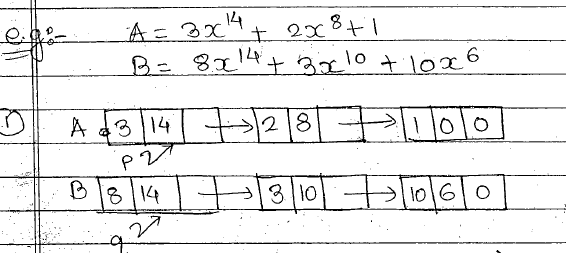 e.g:- A = 3x¹⁴ + 2x⁸ + 1
B = 8x¹⁴ + 3x¹⁰ + 10x⁶
1) A 3 14 → 2 8 → 1 0 0
p
B 8 14 → 3 10 → 10 6 0
q